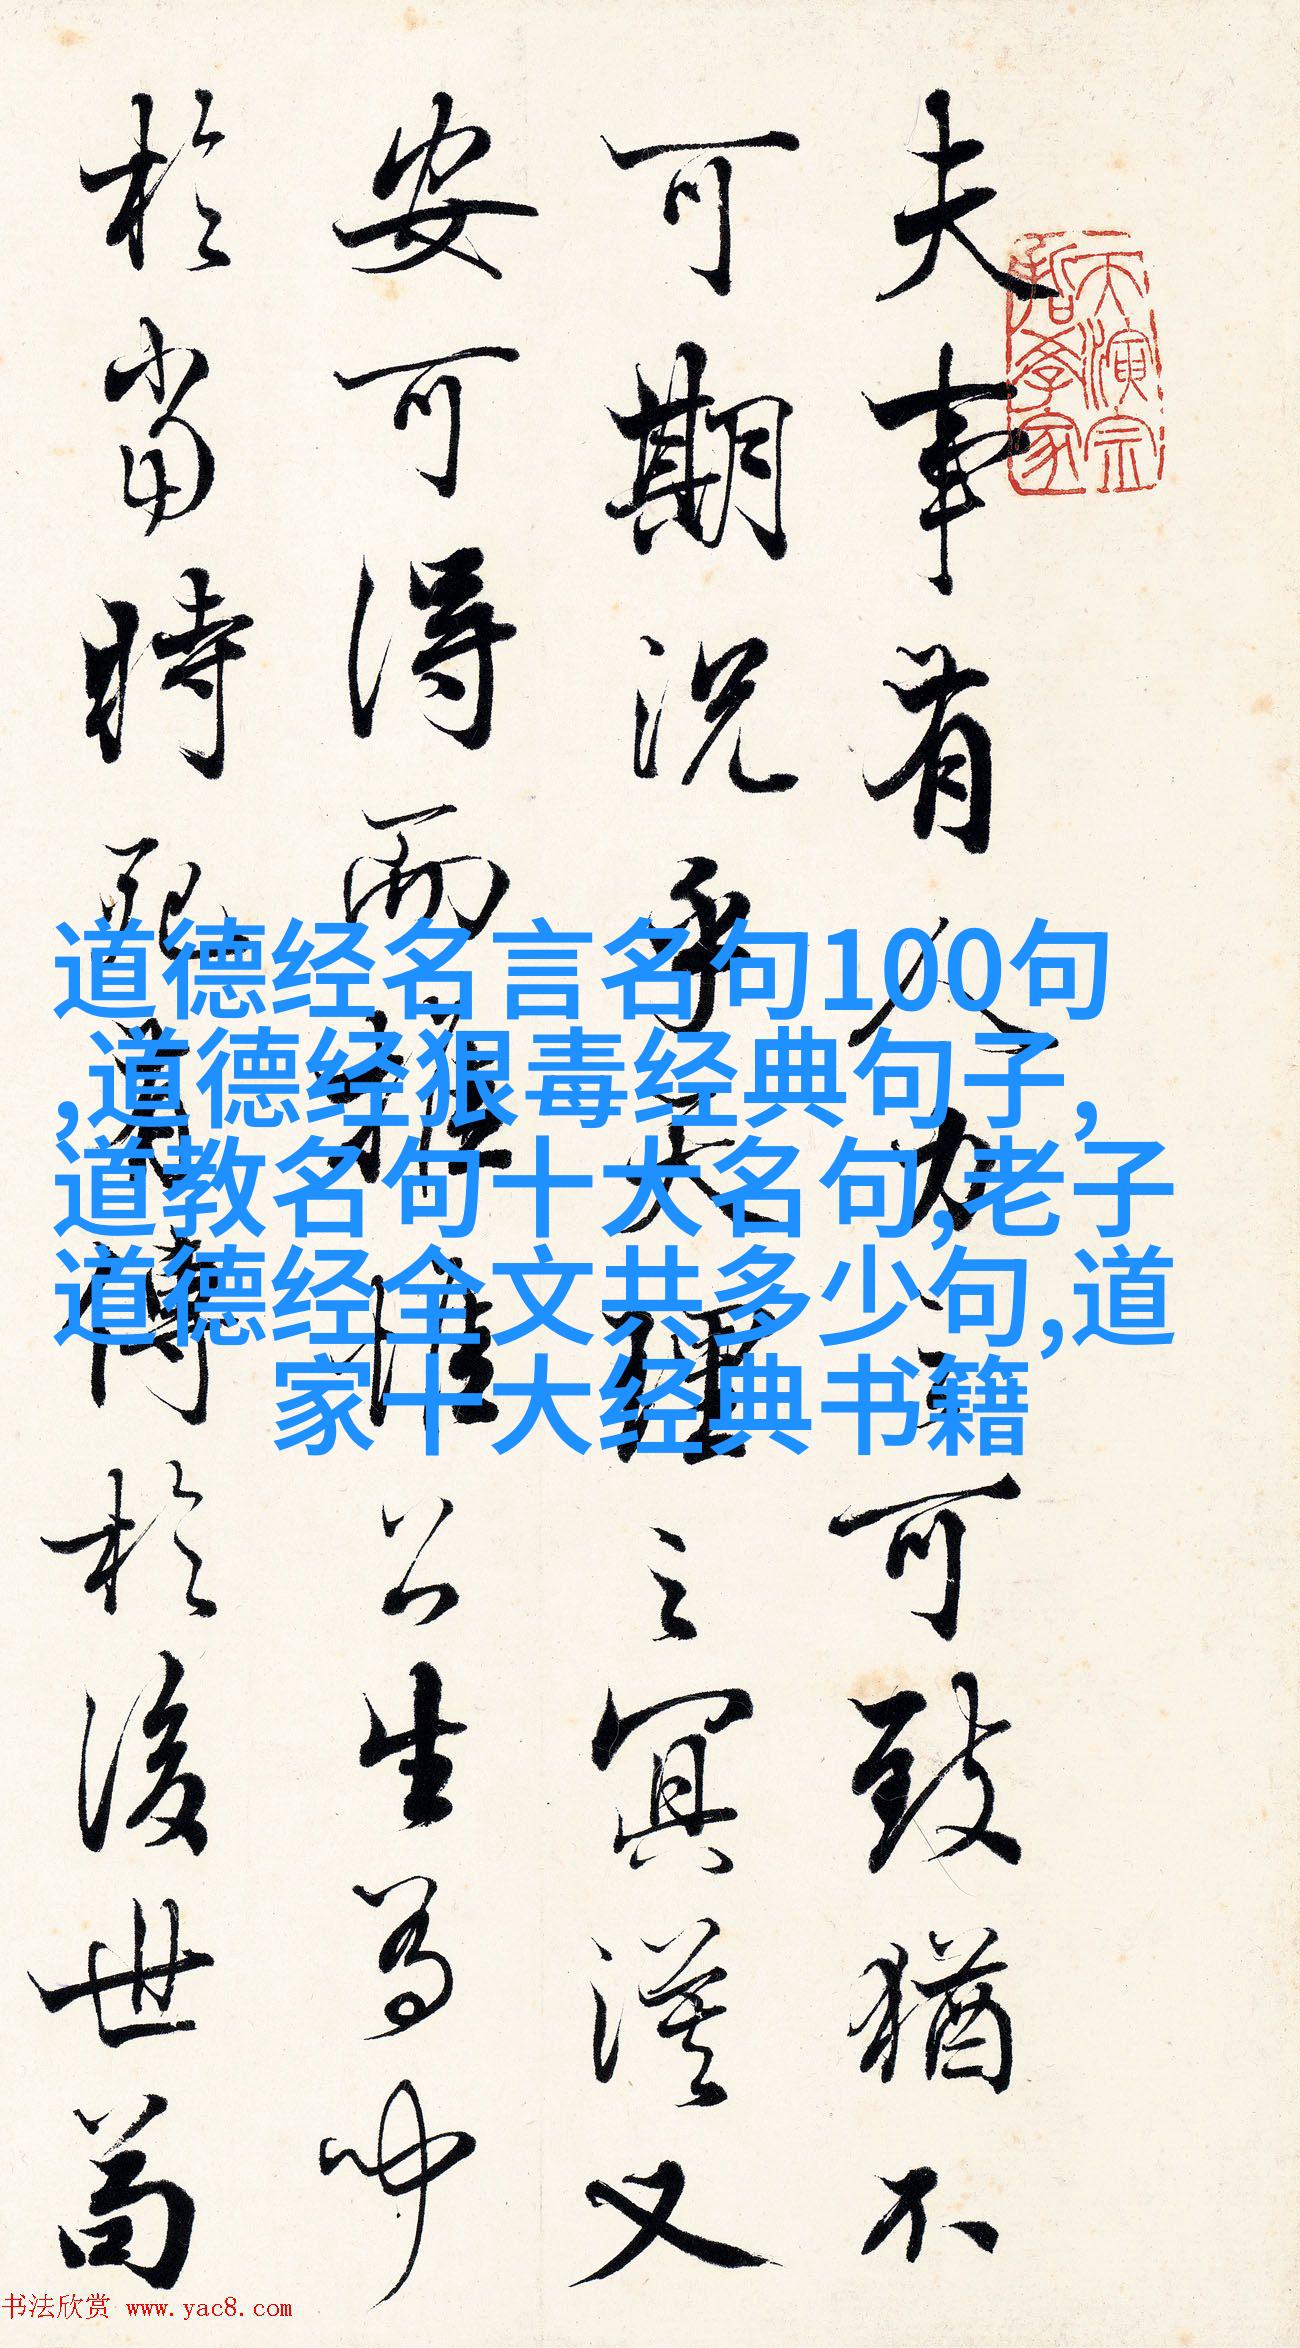 夫事有人力之可致猶不
可期況乎天理之冥漠又
安可得而推惟公生有聞
於當時死有傳於後世苟
天演宗
哲學家
道德经名言名句100句
,道德经狠毒经典句子,
道教名句十大名句,老子
道德经全文共多少句,道
家十大经典书籍
书法欣赏 www.yac8.com